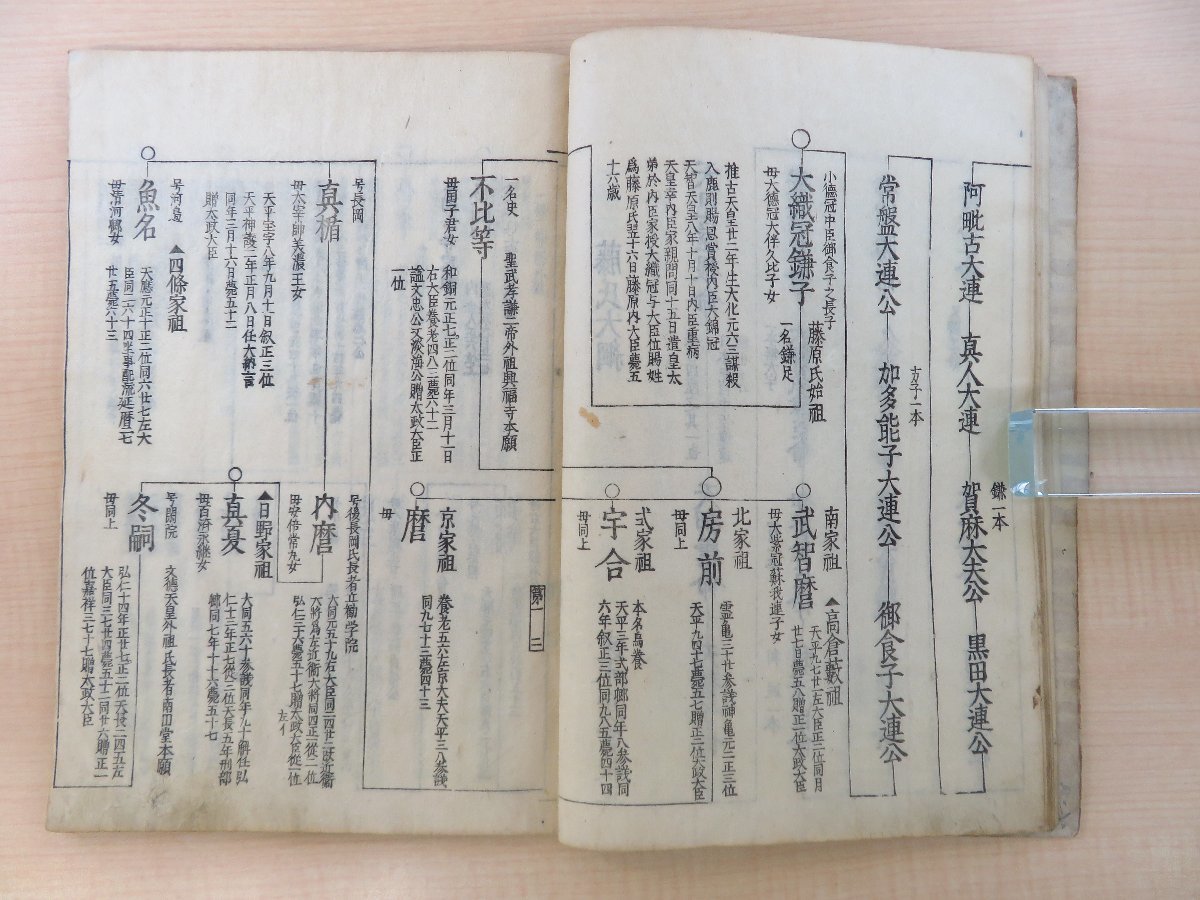 阿毗古大連
真人大連
鎌一本
賀麻大夫公
黒田大連公
常盤大連公
方子一本
加多能子大連公
御食子大連公
小德冠中臣御食子之長子
大織冠鎌子
母大德冠大伴久比子女
藤原氏始祖
一名鎌足
推古天皇廿二年生大化元六三謀殺
入鹿則賜恩賞授内臣大錦冠
天智天皇八年十月十日内臣重病
天皇幸内臣家親問同十五日遣皇太
弟於内臣家授大織冠与大臣位賜姓
爲藤原氏翌十六日藤原内大臣薨五
十六歲
南家祖
武智麿
母大紫冠蘇我連子女
▲高倉藪祖
天平九七廿二左大臣正二位同月
廿七日薨五八贈正一位太政大臣
北家祖
房前
母同上
霊亀三十廿参議神亀元二正三位
天平九四十七薨五七贈正一位太政大臣
式家祖
宇合
母同上
本名馬養
天平三年式部卿同年八参議同
六年叙正三位同九八五薨四十四
第一
二
一名史
不比等
母國子君女
聖武孝謙二帝外祖興福寺本願
和銅元正七正二位同年三月十一日
右大臣養老四八三薨六十二
謚文忠公又淡海公贈太政大臣正
一位
京家祖
麿
母
養老五六左京大夫天平三八参議
同九七十三薨四十三
号長岡
真楯
母太宰帥美濃王女
天平宝字八年九月十日叙正三位
天平神護二年正月八日任大納言
同年三月十六日薨五十二
贈太政大臣
号後長岡氏長者立勧学院
内麿
母安倍常丸女
大同元五十九右大臣同二四廿二改近衛
大將爲左近衛大將同四正二從二位
弘仁三十六薨五十七贈太政大臣從一位
左イ
▲日野家祖
真夏
母百済永継女
大同五六十参議同年九十解任弘
仁十三年正七從三位天長五年刑部
卿同七年十十六薨五十七
号閑院
冬嗣
母同上
文德天皇外祖氏長者南円堂本願
弘仁十四年正廿七正二位天長二四五左
大臣同三七廿四薨五十二同廿六贈正一
位嘉祥三七十七贈太政大臣
号河邉
魚名
母清河卿女
▲四條家祖
天應元正十正二位同六廿七左大
臣同二六十四坐事配流延暦二七
廿五薨六十三